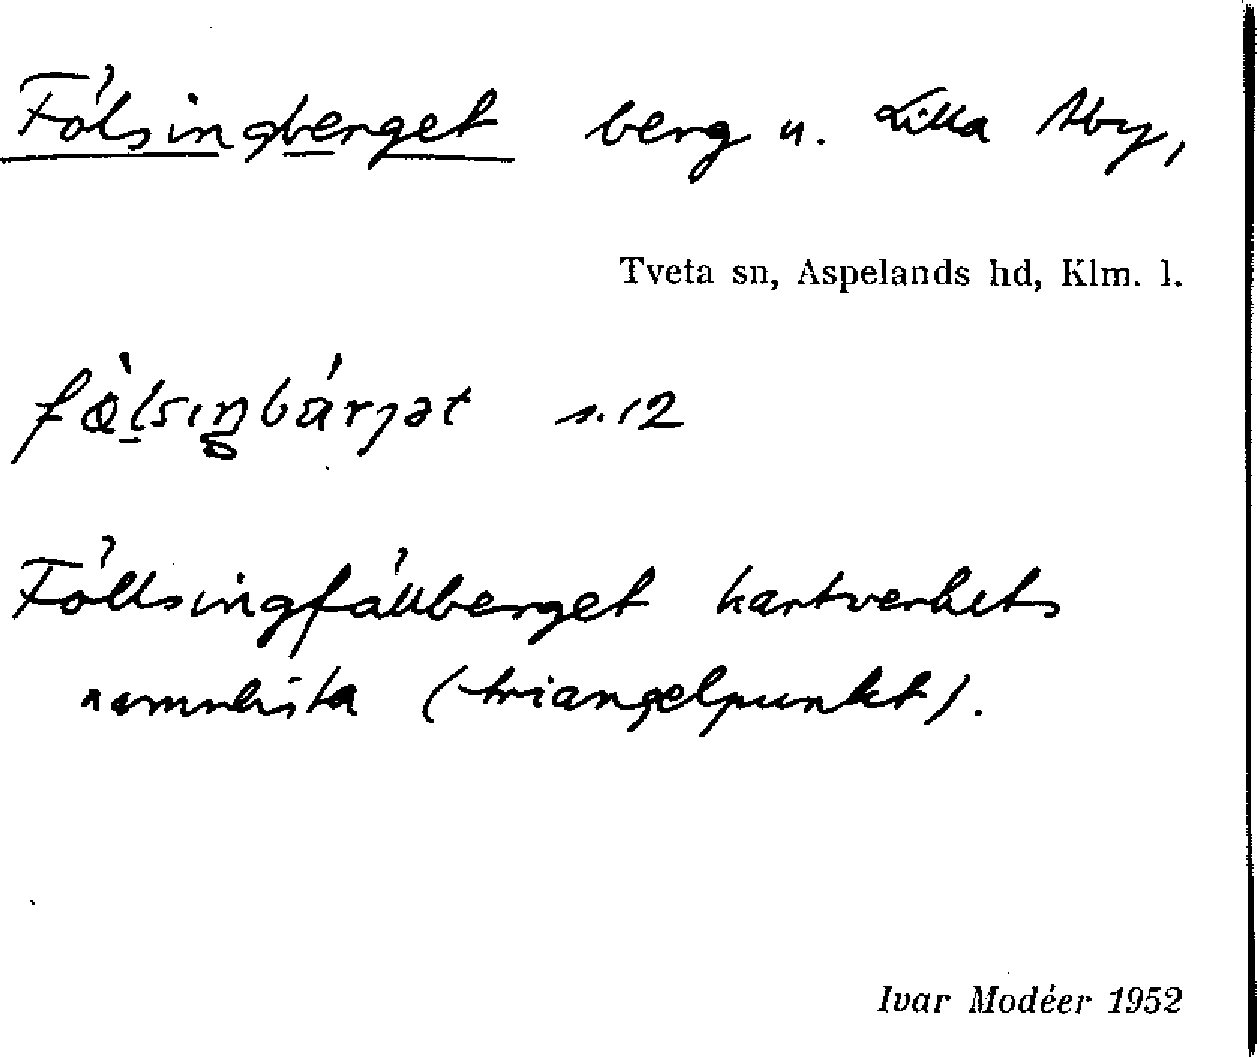 Fölsingberget berg u. Lilla Åby,
Tveta sn, Aspelands hd, Klm. l.
s. 12
Föllsingfällberget kartverkets
namnlista (triangelpunkt).
Ivar Modéer 1952